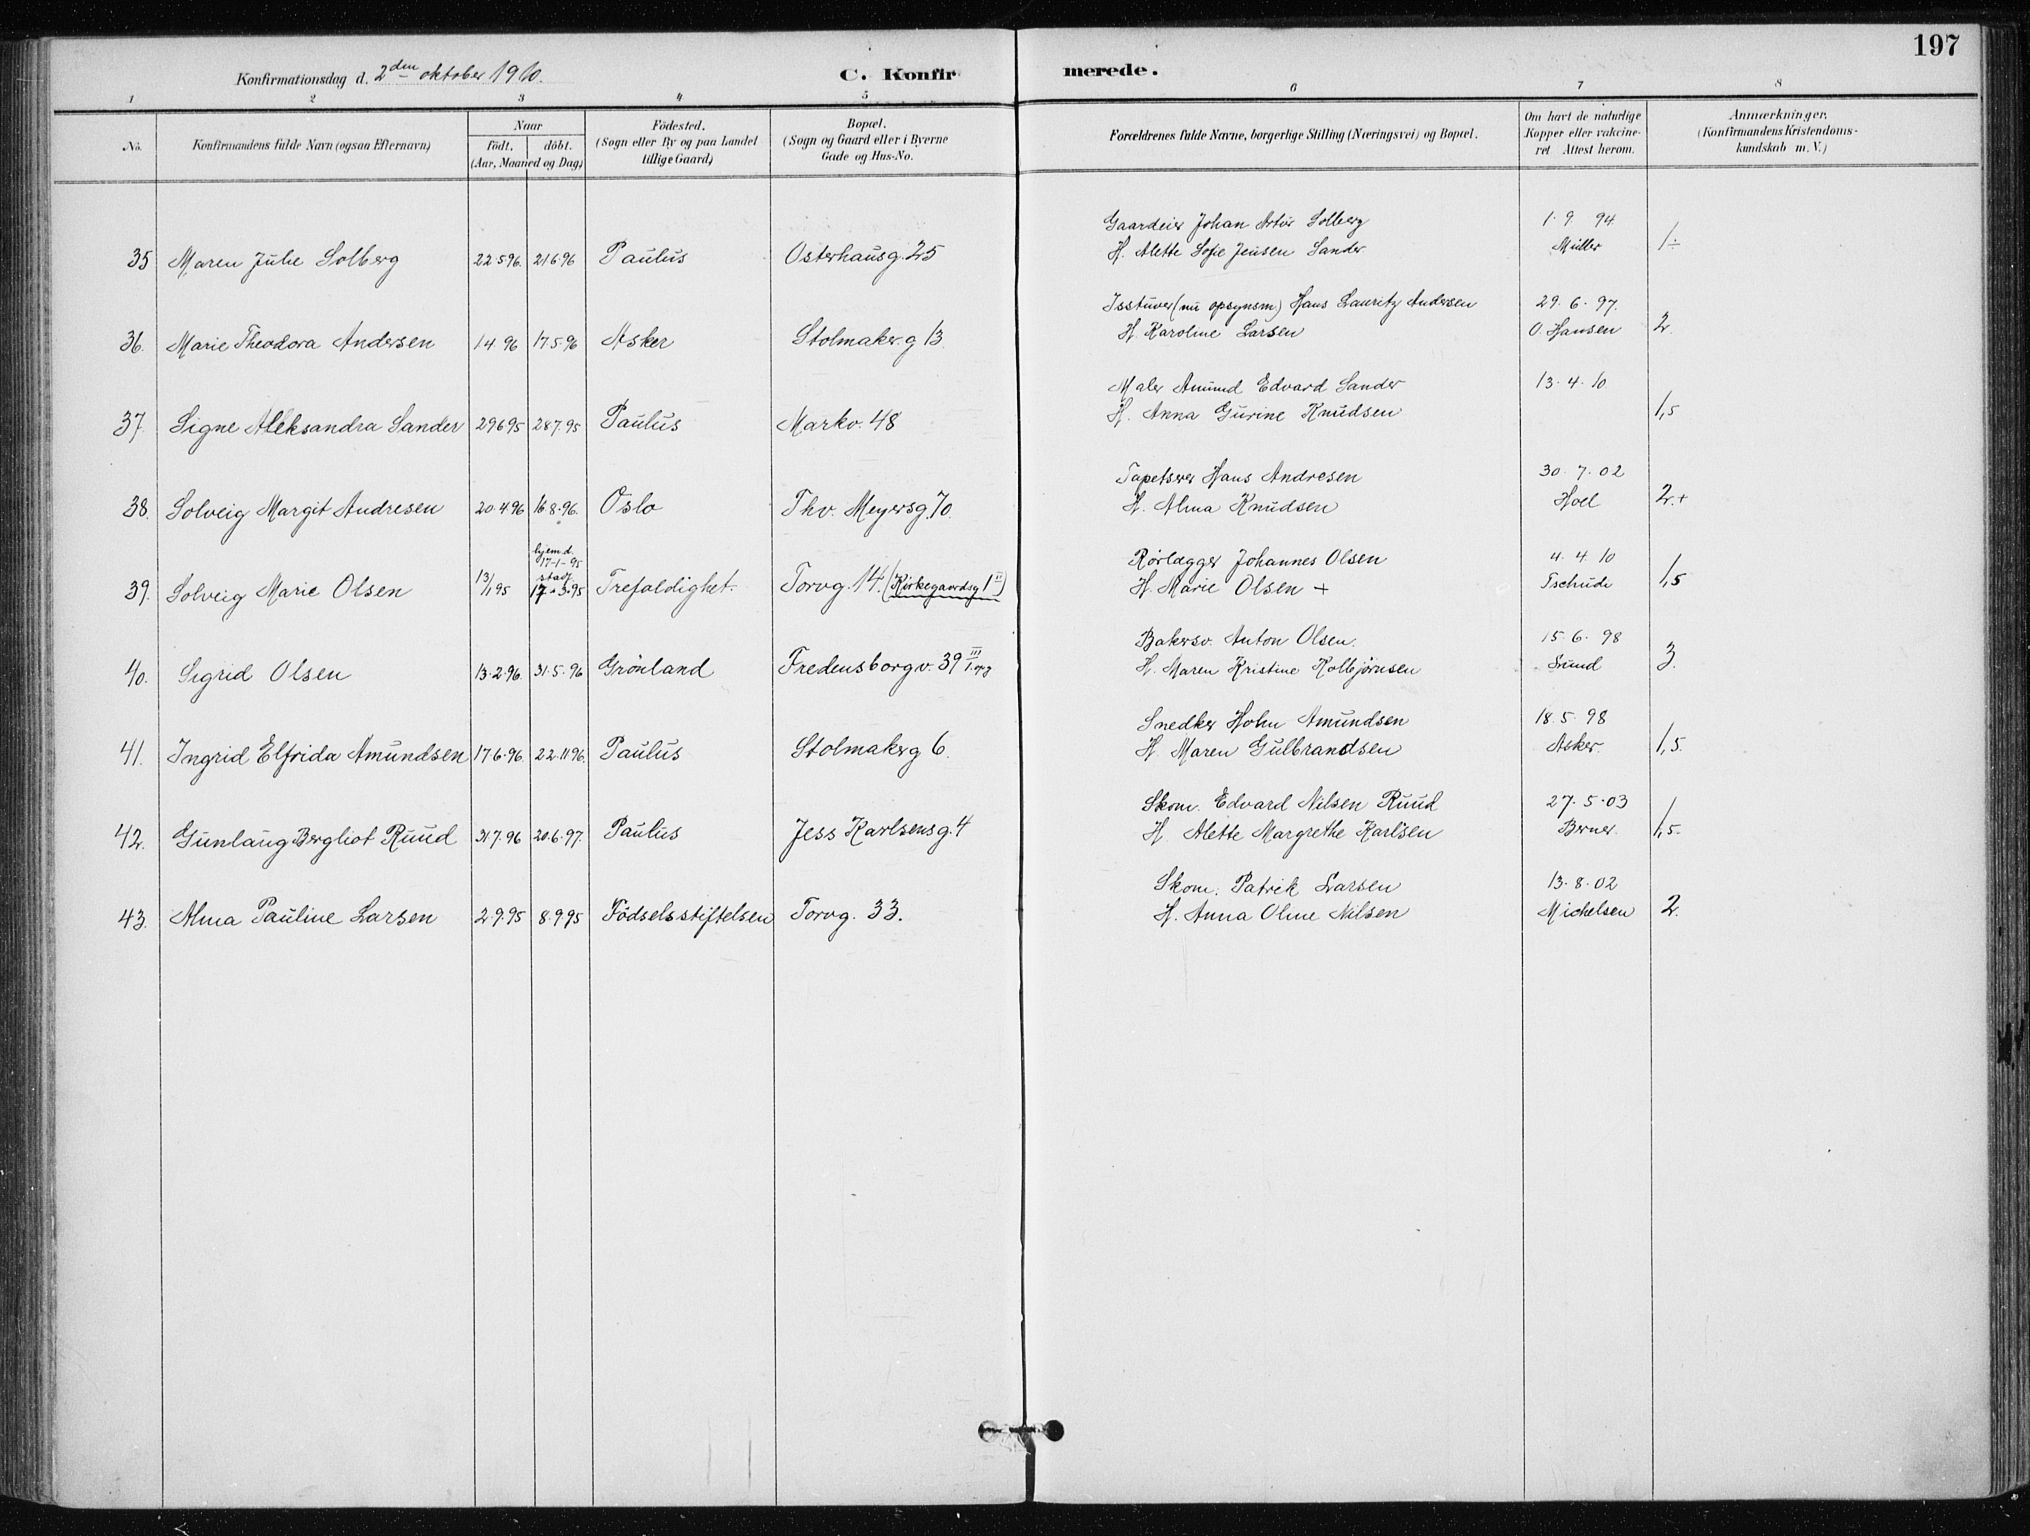 197
Konfirmationsdag d. 2den oktober 1910.
C. Konfirmerede.
1 2 3 4 5 6 7 8
No.
Konfirmandens fulde Navn (ogsaa Efternavn)
Naar
født. døbt.
(Aar, Maaned og Dag)
Fødested.
(Sogn eller By og paa Landet
tillige Gaard)
Bopæl.
(Sogn og Gaard eller i Byerne
Gade og Hus-No.
Forældrenes fulde Navne, borgerlige Stilling (Næringsvei) og Bopæl.
Om havt de naturlige
Kopper eller vakcine-
ret Attest herom.
Anmærkninger.
(Konfirmandens Kristendoms-
kundskab m. V.)
Gaardeier Johan Artur Solberg 1.9 94
35 Maren Julie Solberg 22 5 96. 21 6 96 Paulus Osterhausg. 25 H. Alette Sofie Jensen Sander Müller 1÷
Isstuver (nu opsynsm) Hans Lauritz Andersen 29.6.97.
36. Marie Theodora Andersen 1 4 96 17.5.96 Asker Stolmaker.g 13. H. Karoline Larsen O. Hansen 2.
Maler Amund Edvard Sander 13.4.10
37. Signe Aleksandra Sander 29 6 95 28 7.95 Paulus Markv. 48 H. Anna Gurine Knudsen 1,5
Tapetserer Hans Andresen 30.7.02
38. Solveig Margit Andresen 20.4 96 16 8.96. Oslo Thv. Meyersg. 70. H. Alma Knudsen Hoel 2.+
hjem.d.
17-1-95
stadf.
Rørlægger Johannes Olsen 4.4 10
39. Solveig Marie Olsen 13/1 95 17-3.95 Trefoldighet. Torvg. 14. (Kirkegaardsg 1 II) H. Marie Olsen + Tschude 1,5
Bakersv. Anton Olsen. 15.6.98
40. Sigrid Olsen 13.2.96. 31.5.96 Grønland Fredensborgv. 39 III I. opg H. Maren Kristine Kolbjørnsen Lund 3.
Snedker Hohn Amundsen 18.5.98
41. Ingrid Elfrida Amundsen 17 6.96. 22.11 96. Paulus Stolmakerg 6. H. Maren Gulbrandsen Asker. 1,5.
Skom. Edvard Nilsen Ruud 27.5.03
42. Gunlaug Bergliot Ruud 31 7.96 20.6.97. Paulus Jess Karlsensg. 4 H. Alette Margrethe Karlsen Berner. 1,5.
Skom. Patrik Larsen 13.8.02
43. Alma Pauline Larsen 2.9.95 8.9 95 Fødselsstiftelsen Torvg. 33. H. Anna Oline Nilsen Michelsen 2.